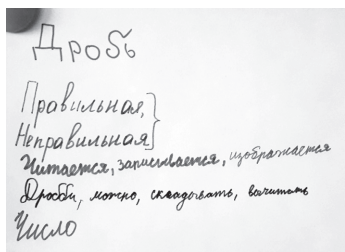 Дробь
Правильная,
Неправильная}
Читается, записывается, изображается
Дробби, можно, складывать, вычитать
Число